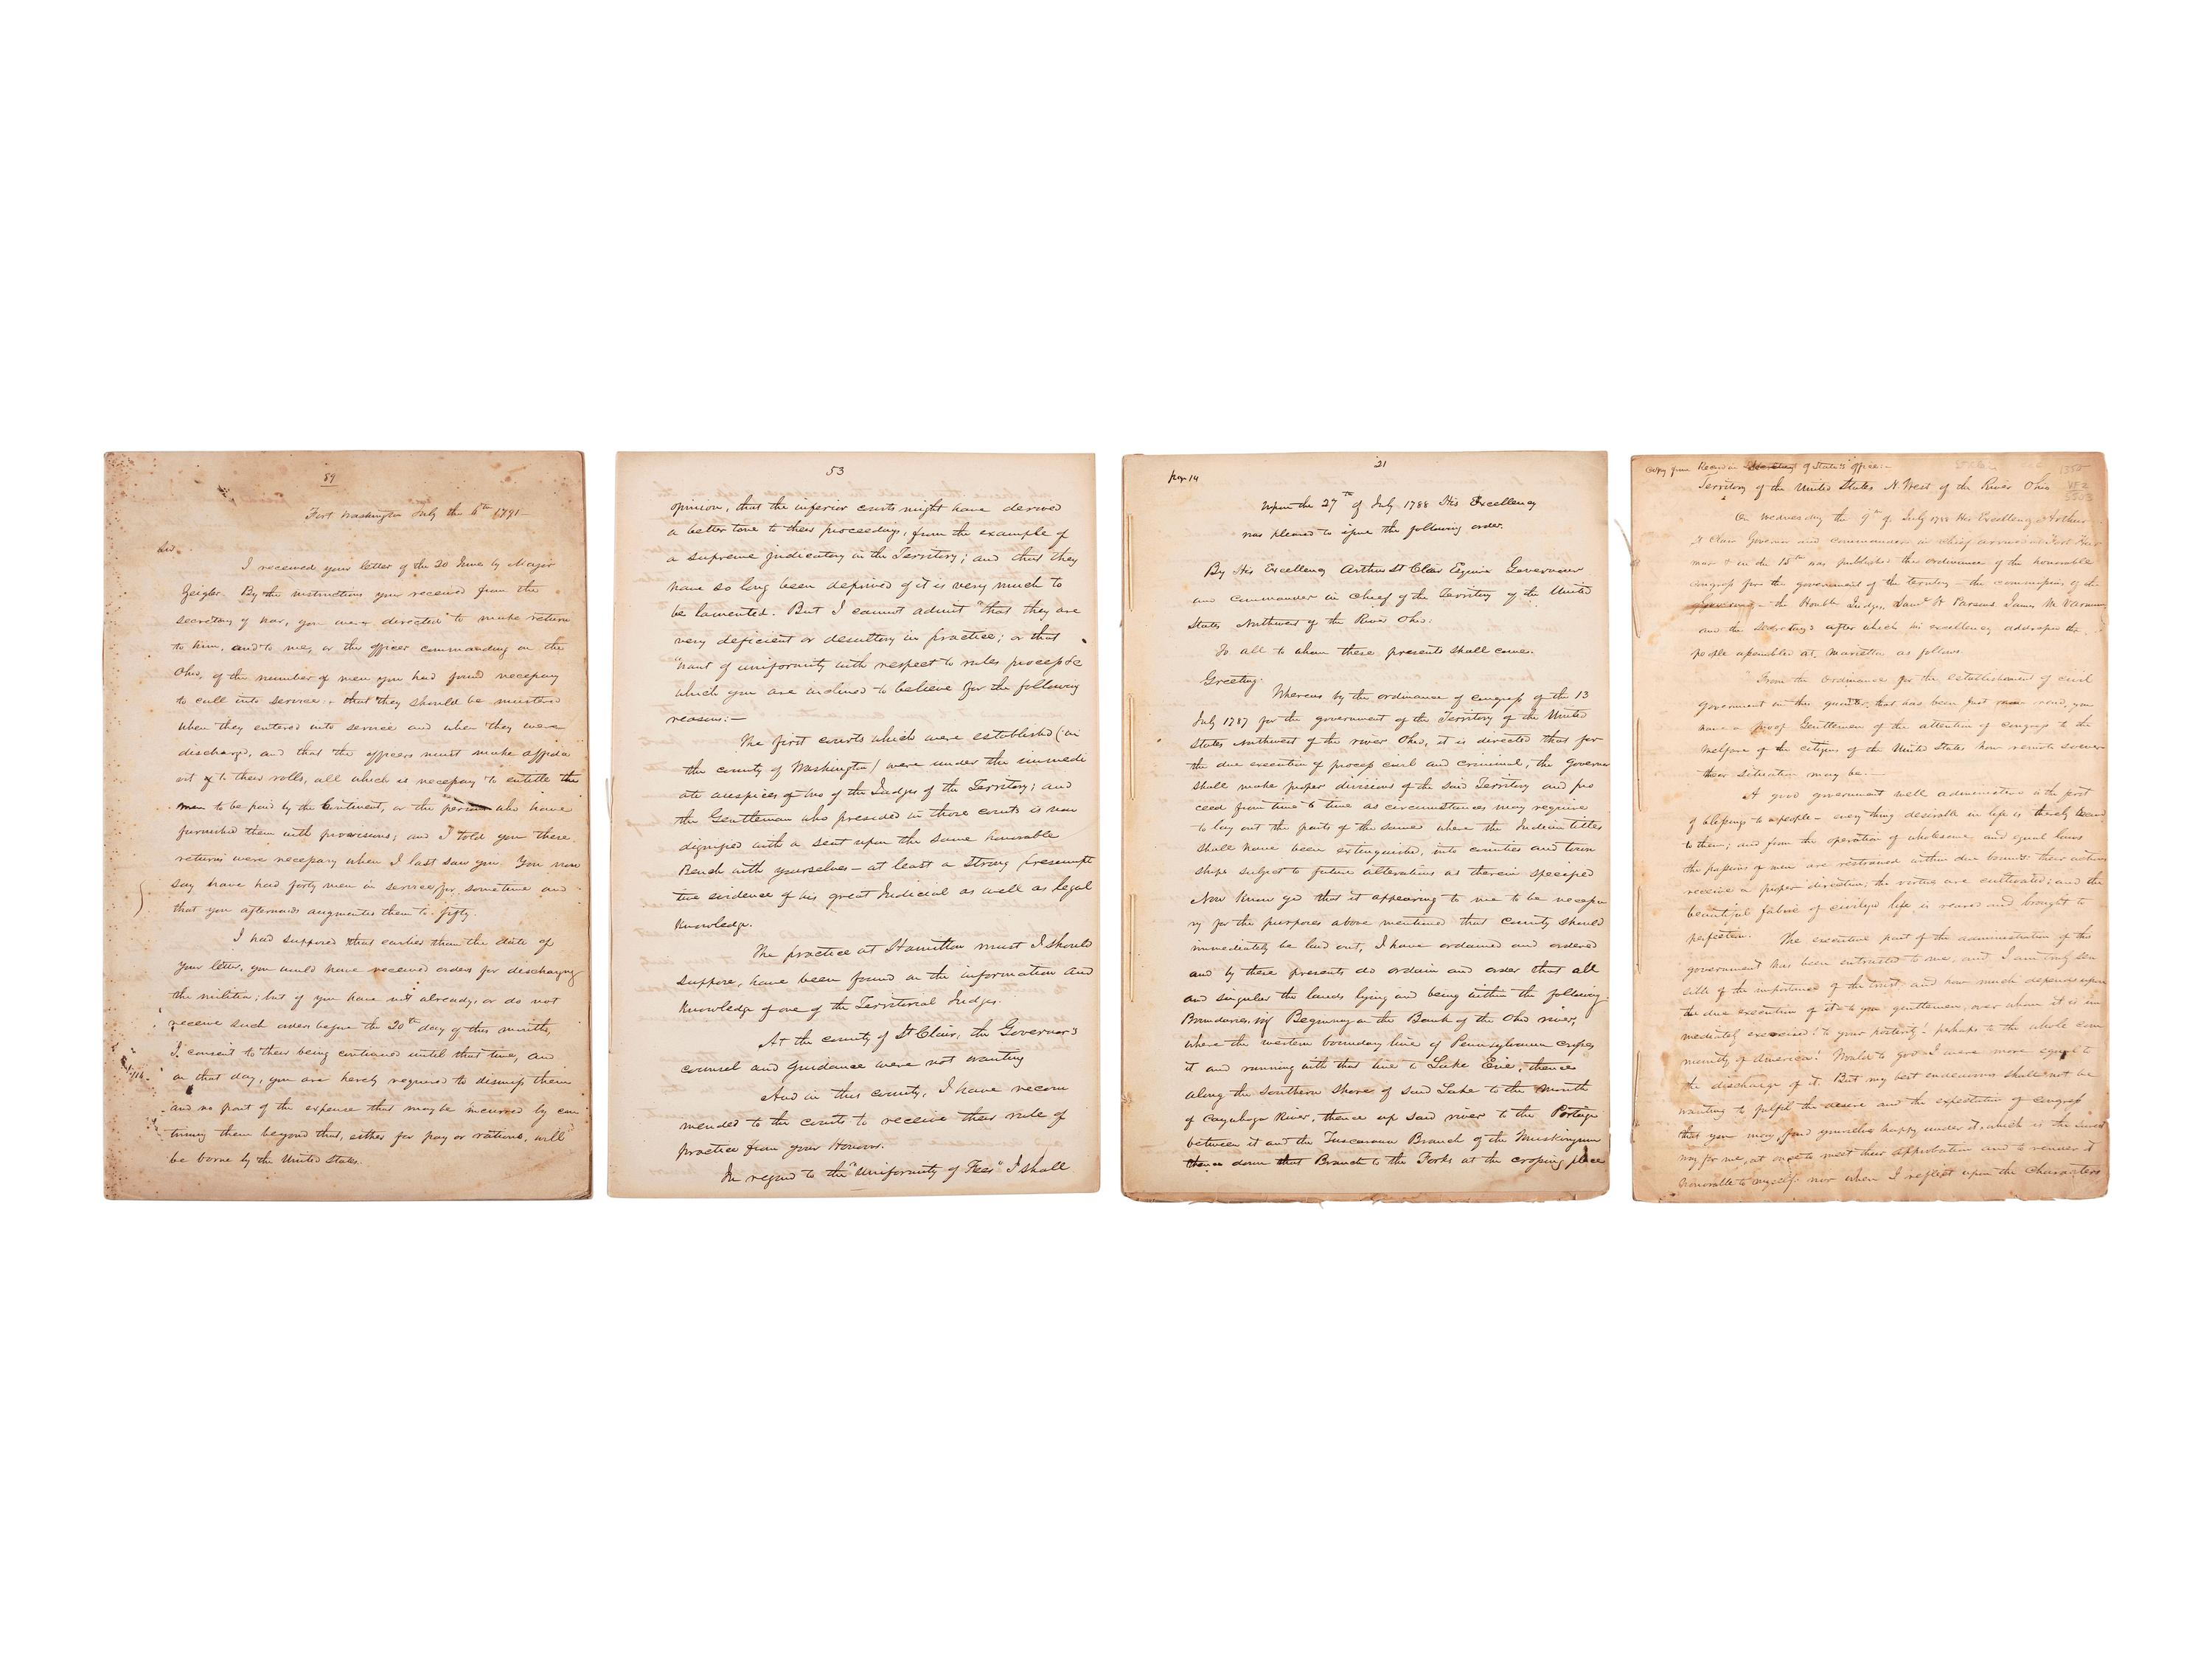 89
Fort Washington July the 6th 1791
Sir
I received your letter of the 20 June by Major
Zeigler. By the instructions you received from the
secretary of war, you were directed to make return
to him, and to me, or the officer commanding on the
Ohio, of the number of men you had found necessary
to call into service, that they should be mustered
when they entered into service and when they were
discharged, and that the officers must make affida
vit to their rolls, all which is necessary to entitle the
men to be paid by the Continent, or the person who have
furnished them with provisions; and I told you these
returns were necessary when I last saw you. You now
say have had forty men in service for sometime and
that you afterwards augmented them to fifty.
I had supposed that earlier than the date of
your letter, you would have received orders for discharging
the militia; but if you have not already, or do not
receive such orders before the 20th day of this month,
I consent to their being continued until that time, and
on that day, you are hereby required to dismiss them
and no part of the expense that may be incurred by con
tinuing them beyond that, either for pay or rations, will
be borne by the United States.
53
opinion, that the inferior courts might have derived
a better tone to their proceedings, from the example of
a supreme judicatory in the Territory; and that they
have so long been deprived of it is very much to
be lamented. But I cannot admit "that they are
very deficient or desultory in practice; or that
"want of uniformity with respect to rules process &c
which you are inclined to believe for the following
reasons:—
The first courts which were established (in
the county of Washington) were under the immedi
ate auspices of two of the Judges of the Territory; and
the Gentleman who presided in those courts is now
dignified with a seat upon the same honorable
Bench with yourselves — at least a strong presumpt
ive evidence of his great Judicial as well as legal
knowledge.
The practice at Hamilton must I should
suppose, have been found on the information and
knowledge of one of the Territorial Judges.
At the county of St Clair, the Governor's
counsel and guidance were not wanting
And in this county, I have recom
mended to the courts to receive their rule of
practice from your Honours.
In regard to the "Uniformity of Fees" I shall
21
page 14
Upon the 27th of July 1788 His Excellency
was pleased to issue the following order.
By His Excellency Arthur St Clair Esquire Governour
and Commander in chief of the Territory of the United
States Northwest of the River Ohio:
To all to whom these presents shall come.
Greeting:
Whereas by the ordinance of congress of the 13
July 1787 for the government of the Territory of the United
States Northwest of the river Ohio, it is directed that for
the due execution of process civil and criminal, the Governor
shall make proper divisions of the said Territory and pro
ceed from time to time as circumstances may require
to lay out the parts of the same where the Indian titles
shall have been extinguished, into counties and town
ships subject to future alterations as therein specified
Now Know ye that it appearing to me to be necessa
ry for the purposes above mentioned that County should
immediately be laid out, I have ordained and ordered
and by these presents do ordain and order that all
and singular the lands lying and being within the following
Boundaries, viz Beginning on the Bank of the Ohio river,
where the western boundary line of Pennsylvania crosses
it and running with that line to Lake Erie; thence
along the Southern shore of said Lake to the mouth
of Cayuhoga River, thence up said river to the Portage
between it and the Tuscarawa Branch of the Muskingum
thence down that Branch to the Forks at the crossing place
Copy from Record in Secretary of State's office:—
Territory of the United States N. West of the River Ohio
On Wednesday the 9th of July 1788 His Excellency Arthur
St Clair Governor and commander in chief arrived at Fort Har
mar & on the 15th was published the ordinance of the honorable
congress for the government of the territory — the commissions of the
Governor — the Honble Judges Saml H Parsons James M Varnum
and the Secretarys after which his excellency addressed the
people assembled at Marietta as follows.
From the Ordinance for the establishment of civil
Government in this quarter, that has been just now read, you
have a proof Gentlemen of the attention of Congress to the
welfare of the citizens of the United States how remote soever
their situation may be.—
A good government well administered is the first
of blessings to a people — every thing desirable in life is thereby
to them; and from the operation of wholesome and equal laws
the passions of men are restrained within due bounds: their actions
receive a proper direction; the virtues are cultivated; and the
beautiful fabric of civilized life is reared and brought to
perfection. The executive part of the administration of this
government has been intrusted to me, and I am truly sen
sible of the importance of the trust and how much depends upon
the due execution of it — to you gentlemen, over whom it is im
mediately exercised! to your posterity! perhaps to the whole com
munity of America! Would to god I were more equal to
the discharge of it. But my best endeavors shall not be
wanting to fulfil the desire and the expectation of congress
that you may find yourselves happy under it, which is the surest
way for me, at once to meet their approbation and to render it
honorable to myself: nor when I reflect upon the Characters